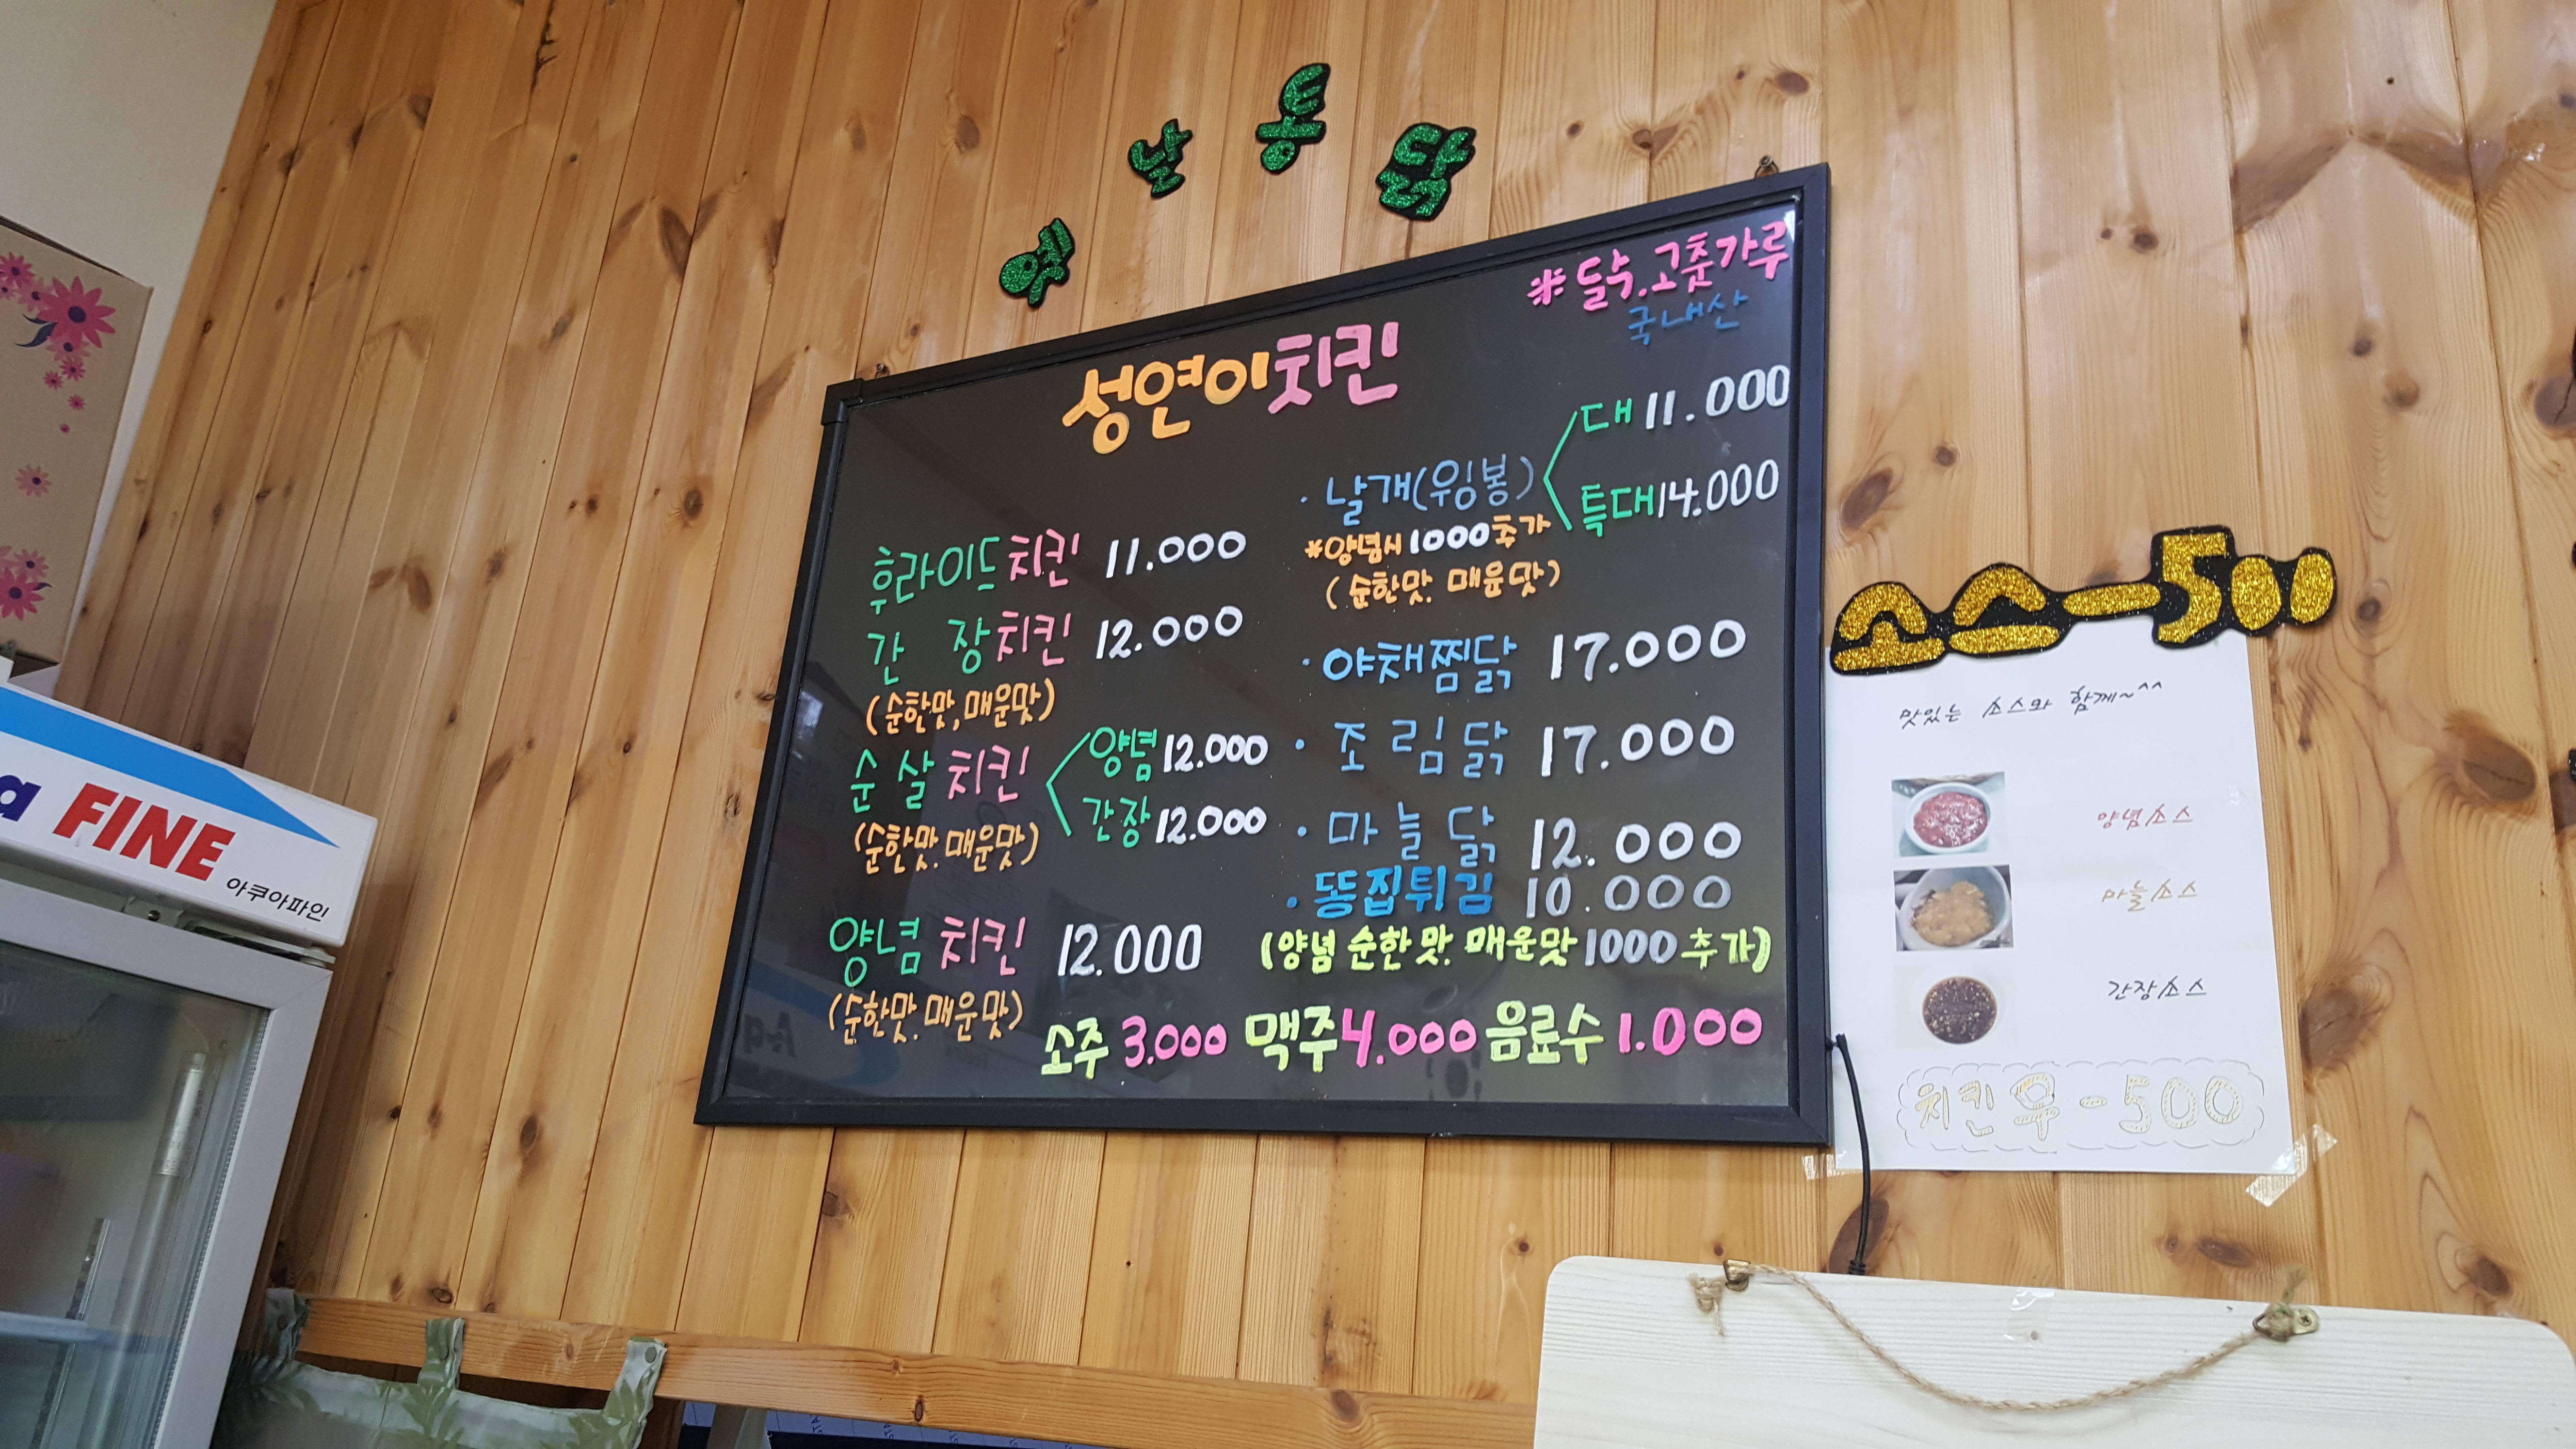 옛날통닭
※ 닭, 고춧가루
국내산
성연이치킨
후라이드치킨 11.000
간 장치킨 12.000
(순한맛,매운맛)
순 살 치킨
양념 12.000
간장 12.000
(순한맛.매운맛)
양념 치킨 12.000
(순한맛.매운맛)
· 날개(윙봉)
대 11.000
특대 14.000
*양념시 1000추가
(순한맛. 매운맛)
· 야채찜닭 17.000
· 조 림 닭 17.000
· 마 늘 닭 12.000
· 똥집튀김 10.000
(양념 순한 맛. 매운맛 1000 추가)
소주 3.000 맥주 4.000 음료수 1.000
소스-500
맛있는 소스와 함께~^^
양념소스
마늘소스
간장소스
치킨무-500
a FINE
아쿠아파인